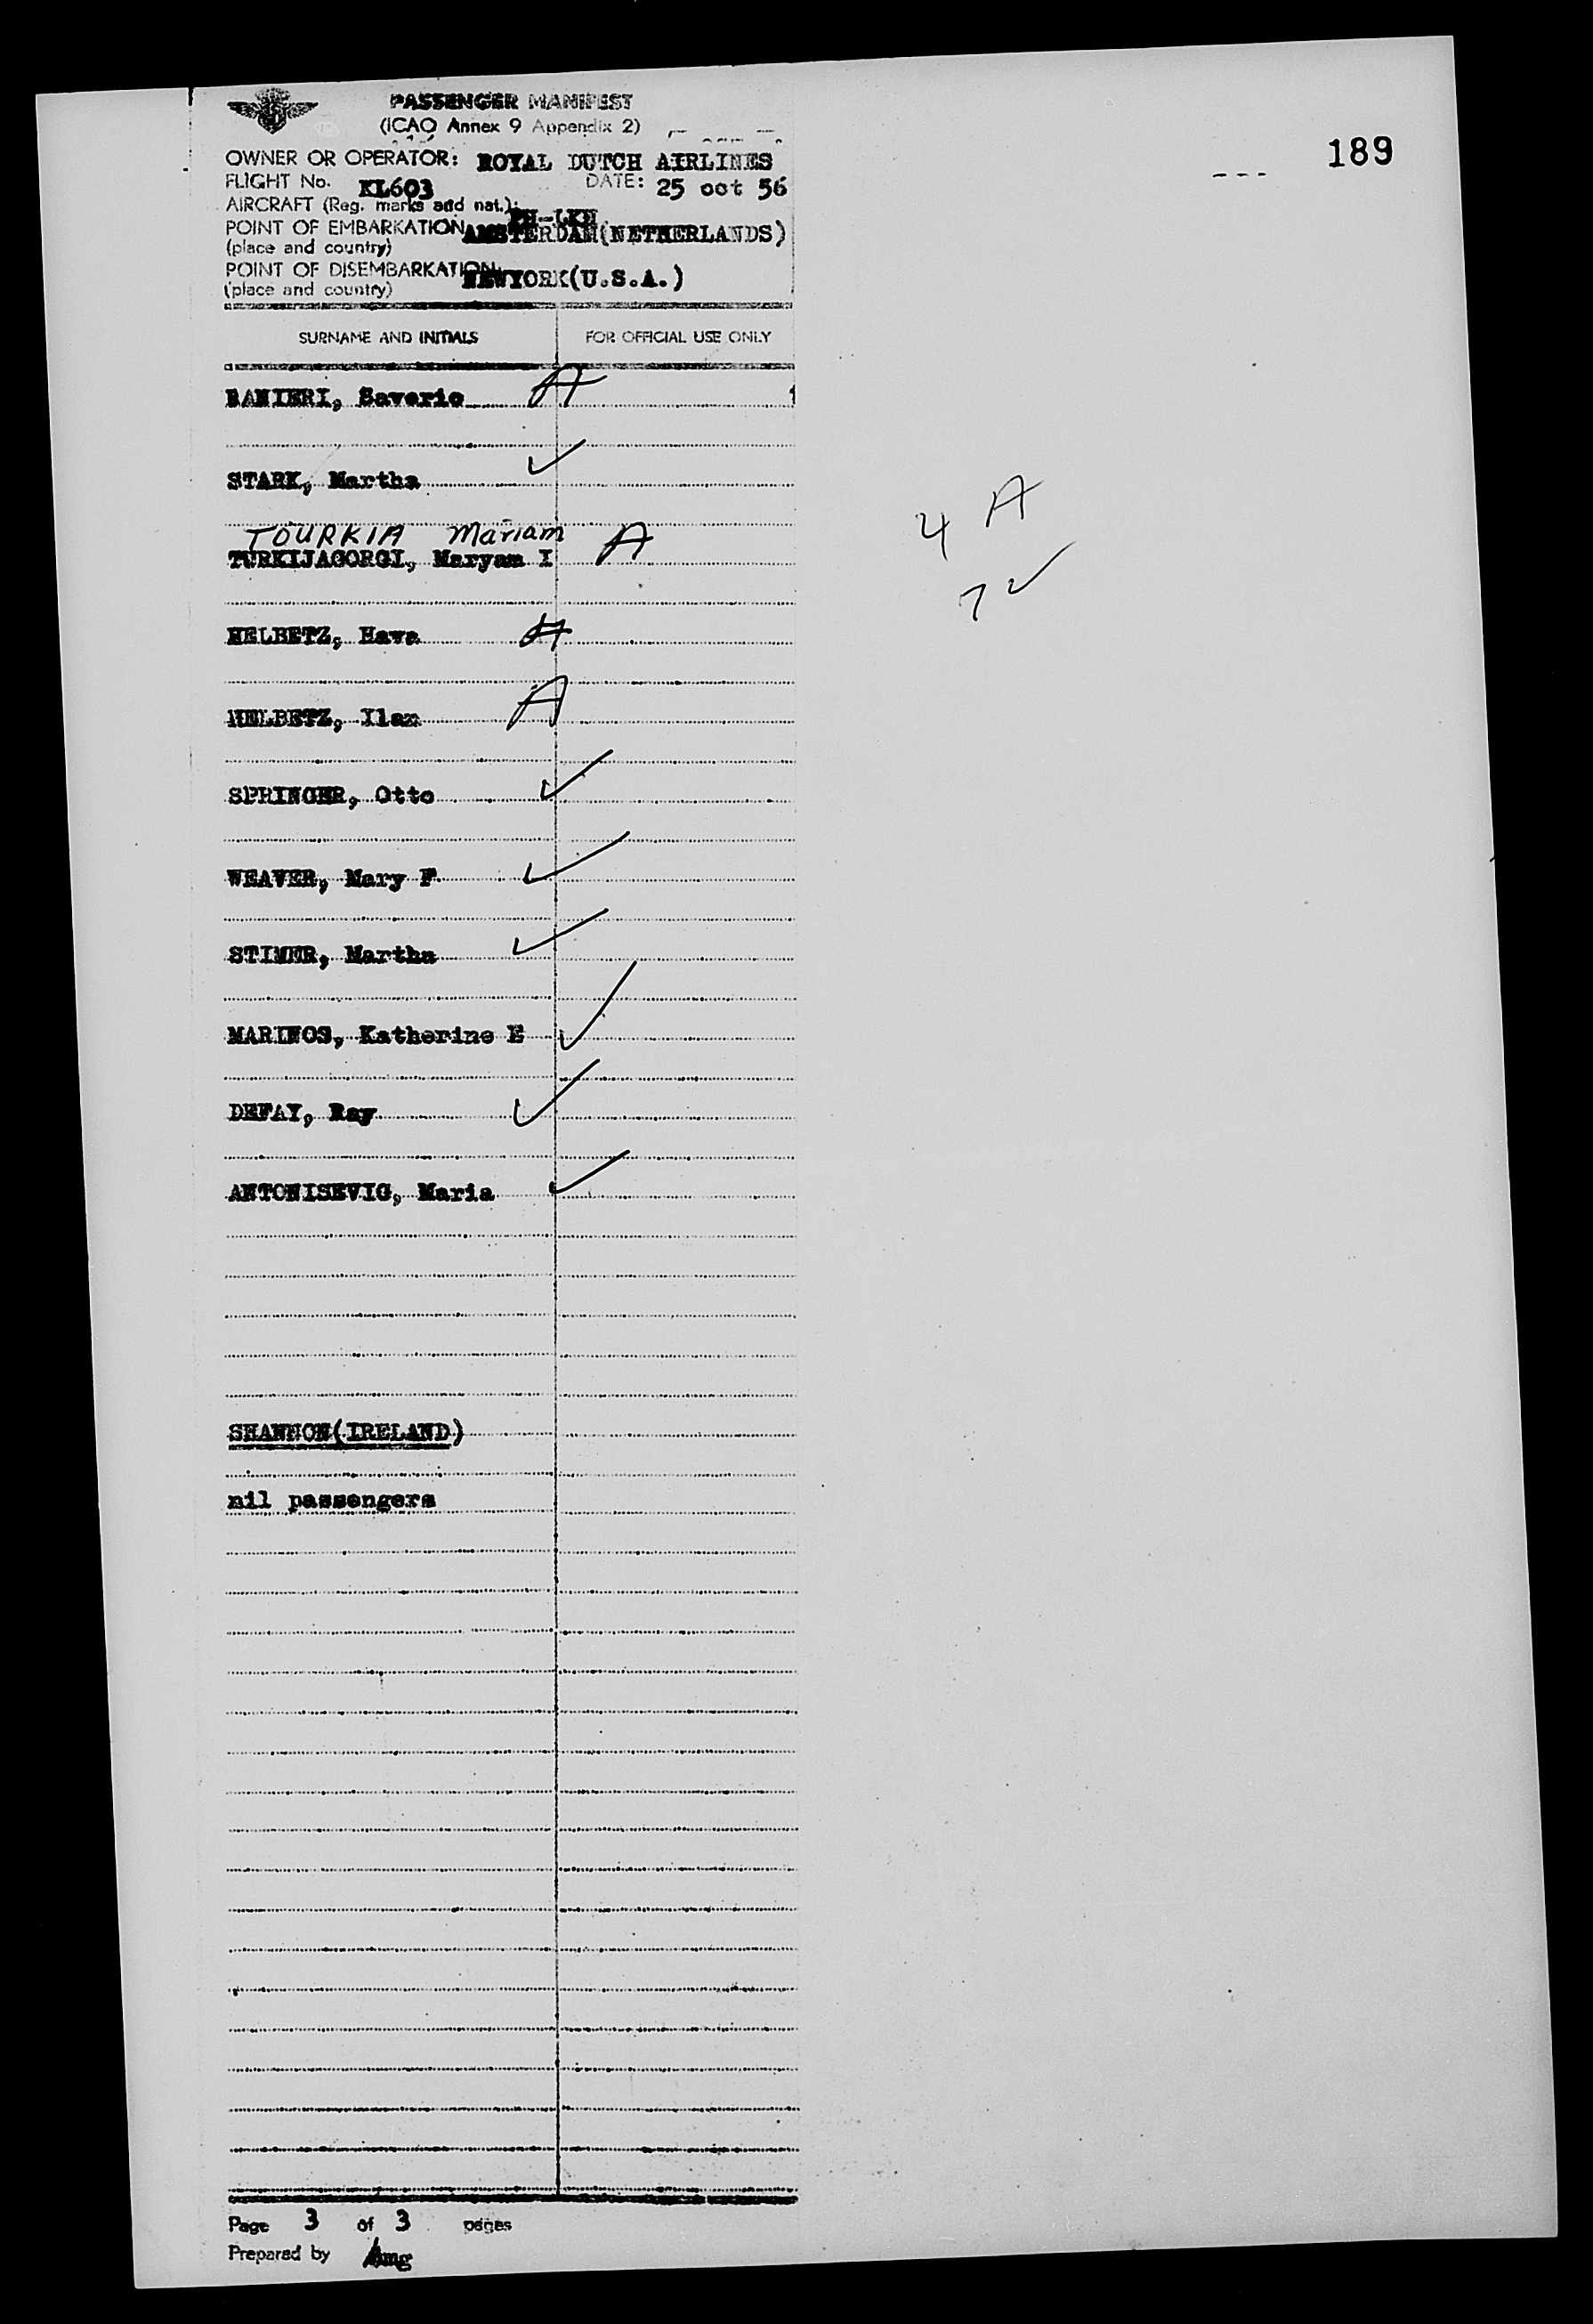 PASSENGER MANIFEST
(ICAO Annex 9 Appendix 2)
189
OWNER OR OPERATOR: ROYAL DUTCH AIRLINES
FLIGHT No. KL603 DATE: 25 oct 56
AIRCRAFT (Reg. marks and nat.):
POINT OF EMBARKATION AMSTERDAM(NETHERLANDS)
(place and country)
POINT OF DISEMBARKATION NEWYORK(U.S.A.)
(place and country)
SURNAME AND INITIALS FOR OFFICIAL USE ONLY
RANIERI, Saverio A
STARK, Martha ✓
TOURKIA Mariam
TURKIJAGORGI, Maryam I A
4 A
7 ✓
HELBETZ, Hava A
HELBETZ, Ilan A
SPRINGER, Otto ✓
WEAVER, Mary F ✓
STIMER, Martha ✓
MARINOS, Katherine E ✓
DEFAY, Ray ✓
ANTONISEVIG, Maria ✓
SHANNON(IRELAND)
nil passengers
Page 3 of 3 pages
Prepared by